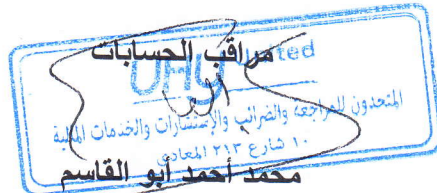 مراقب الحسابات
UHY United
المتحدون للمراجعة والضرائب والإستشارات والخدمات المالية
١٠ شارع ٢١٣ المعادى
محمد أحمد أبو القاسم